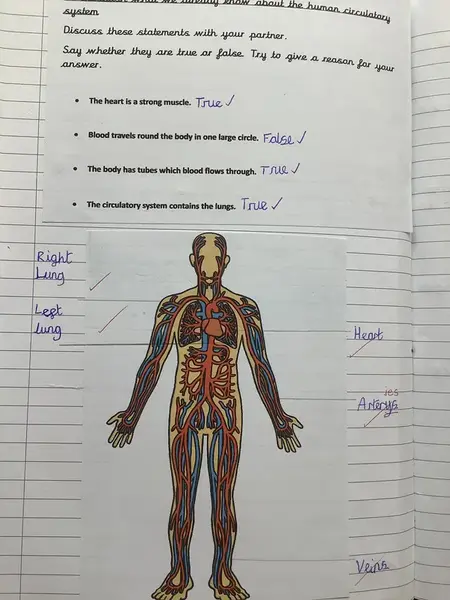 what we already know about the human circulatory
system
Discuss these statements with your partner.
Say whether they are true or false. Try to give a reason for your
answer.
• The heart is a strong muscle. True ✓
• Blood travels round the body in one large circle. False ✓
• The body has tubes which blood flows through. True ✓
• The circulatory system contains the lungs. True ✓
Right
Lung
Left
lung
Heart
ies
Arterys
Veins